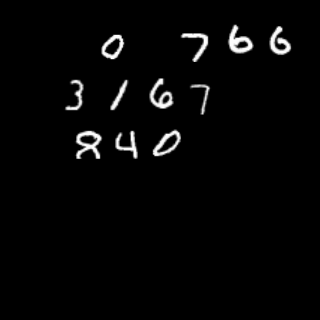 0 766
3167
840